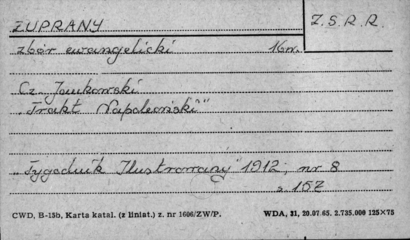 ŻUPRANY
Z.S.R.R.
zbór ewangelicki 16 w.
Cz. Jankowski
"Trakt Napoleoński"
"Tygodnik Ilustrowany" 1912, nr 8
s. 152
CWD, B-15b, Karta katal. (z liniat.) z. nr 1606/ZW/P. WDA, 31, 20.07.65. 2.735.000 125×75